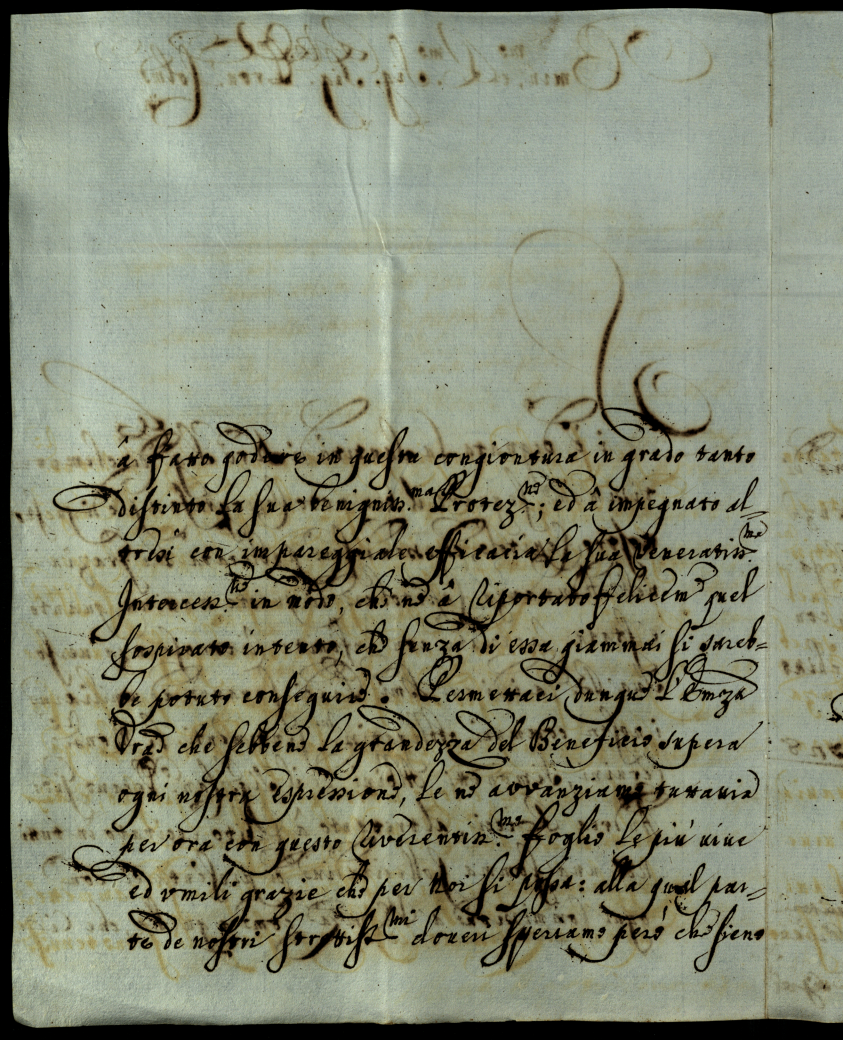 à fatto godere in questa congiontura in grado tanto
distinto la sua benigniss.ma Protez.ne; ed à impegnato al=
tresi con impareggiale efficacia la sua veneratiss.ma
Intercess.ne in modo, che ne à riportato felicem.e quel
sospirato intento, che senza di essa giammai si sareb=
be potuto conseguire. Permettaci dunque l'Emza
Vra che sebbene la grandezza del Beneficio supera
ogni nostra espressione, le ne avvanziamo tuttavia
per ora con questo riverentiss.mo foglio le più vive
ed vmili grazie che per noi si possa: alla qual par=
te de nostri strettiss.mi doveri speriamo però che sieno